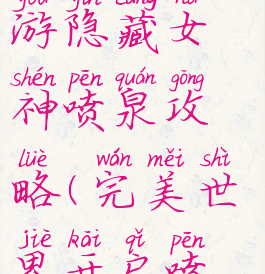 游隐藏女
shén pēn quán gōng
神喷泉攻
lüè wán měi shì
略(完美世
jiè kāi qǐ pēn
界开启喷